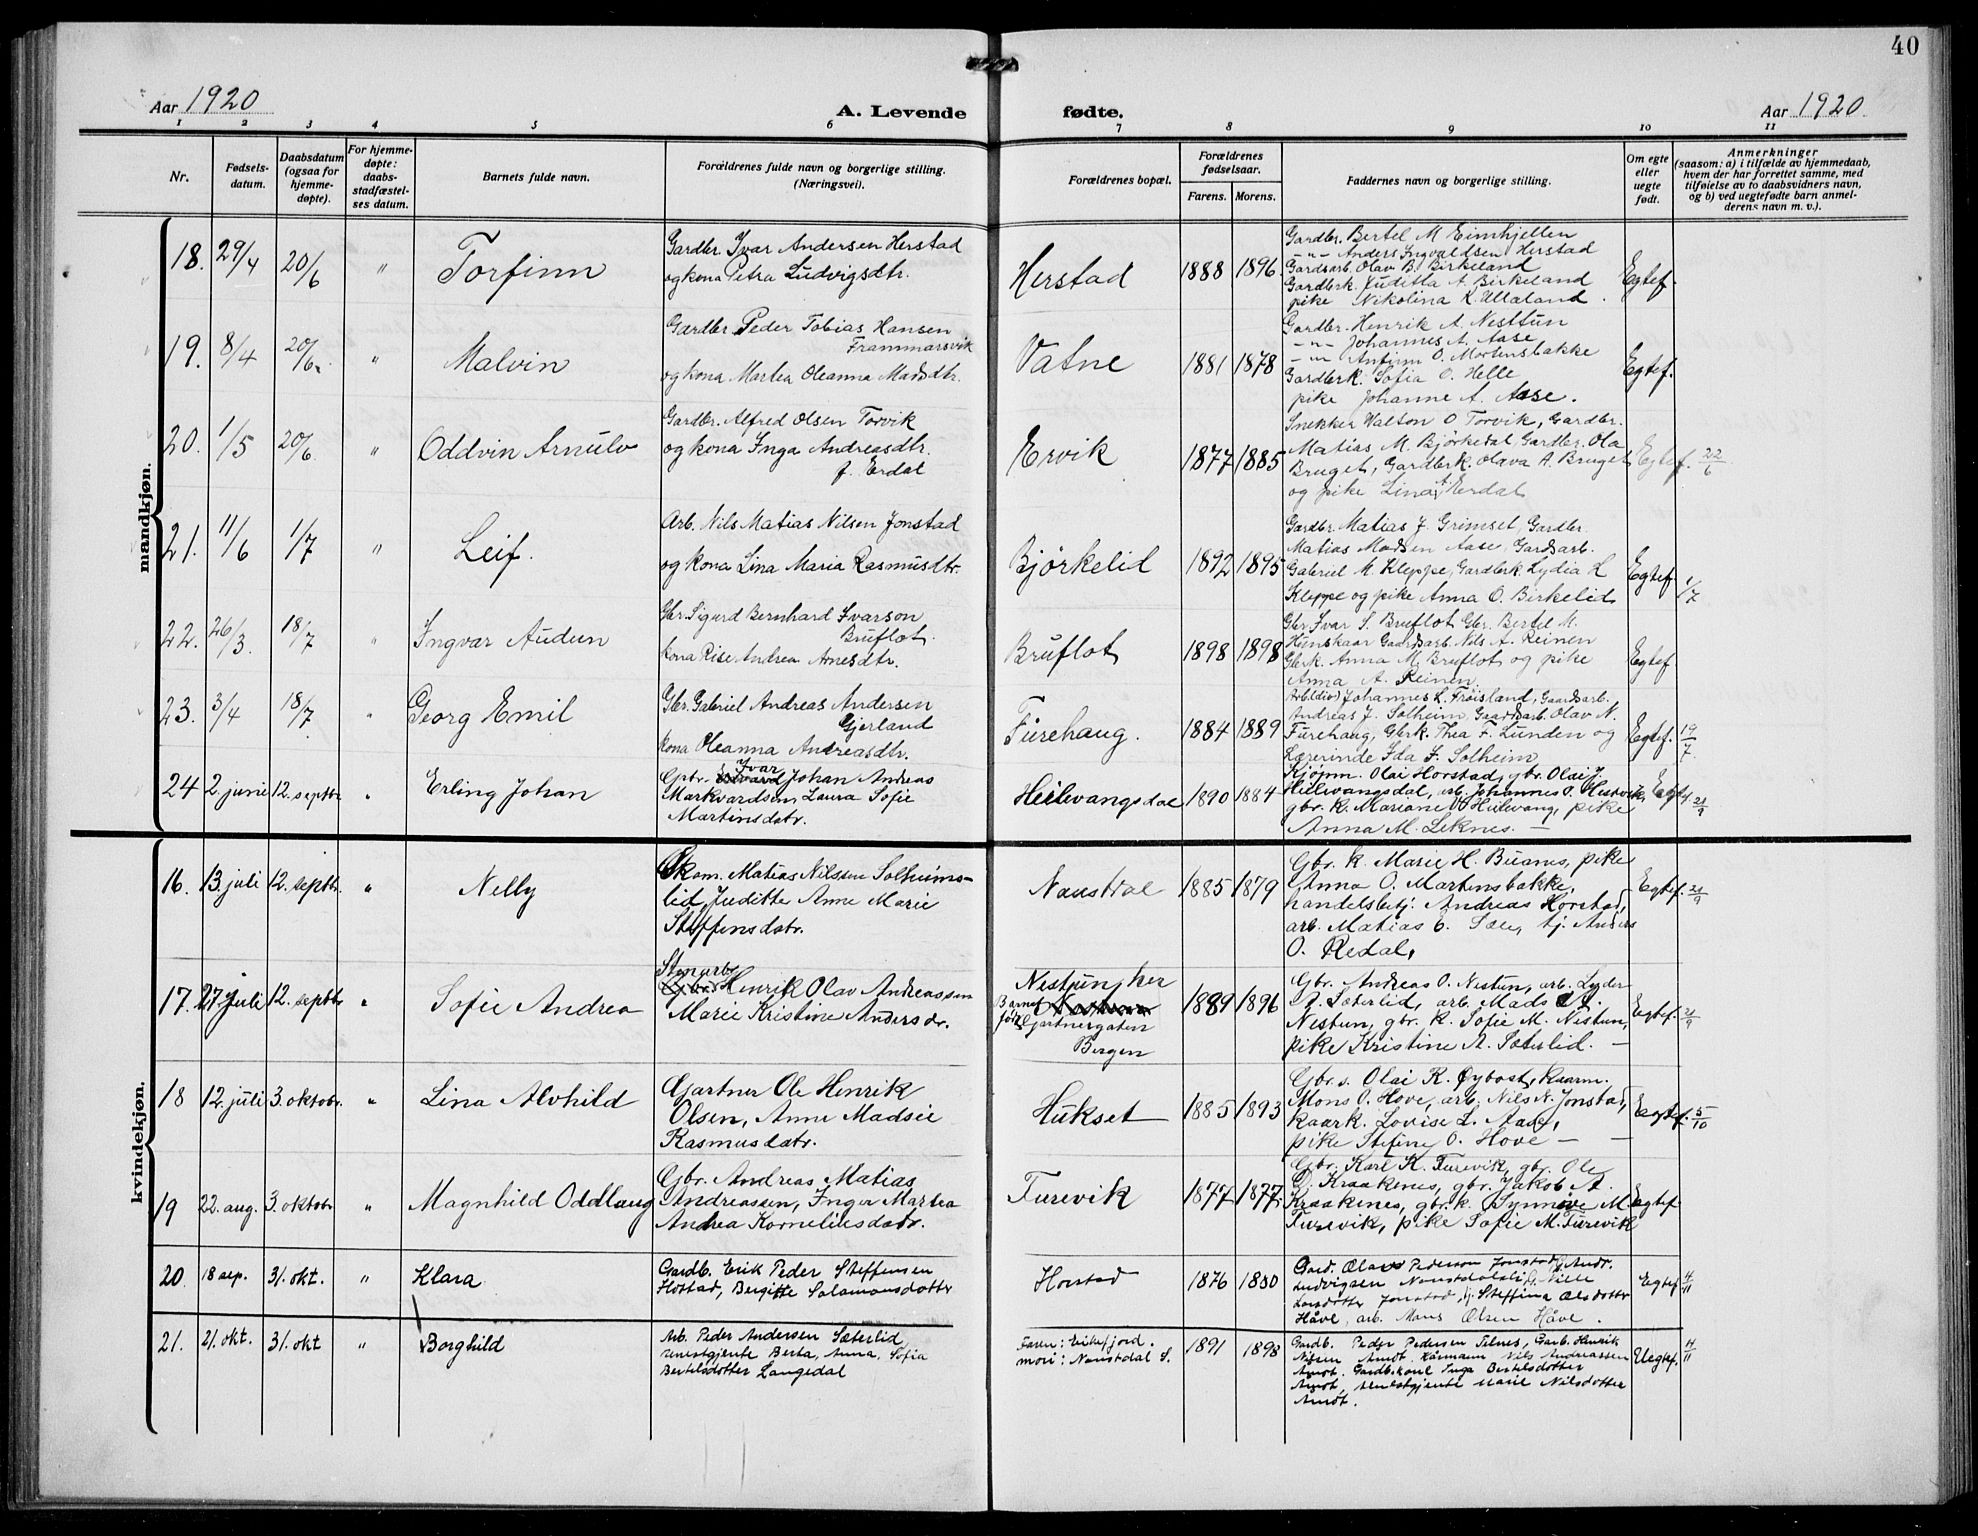 40
Aar 1920
A. Levende fødte.
Aar 1920.
1 2 3 4 5 6 7 8 9 10 11
Nr.
Fødsels-
datum.
Daabsdatum
(ogsaa for
hjemme-
døpte).
For hjemme-
døpte:
daabs-
stadfæstel-
ses datum.
Barnets fulde navn.
Forældrenes fulde navn og borgerlige stilling.
(Næringsvei).
Forældrenes bopæl.
Forældrenes
fødselsaar.
Farens. Morens.
Faddernes navn og borgerlige stilling.
Om egte
eller
uegte
født.
Anmerkninger
(saasom: a) i tilfælde av hjemmedaab,
hvem der har forrettet samme, med
tilføielse av to daabsvidners navn,
og b) ved uegtefødte barn anmel-
derens navn m. v.).
mandkjøn.
18. 29/4 20/6 " Torfinn
Gardbr. Ivar Andersen Herstad
og kona Petra Ludvigsdtr.
Herstad 1888 1896
Gardbr. Bertel M Eimhjellen
-"- Anders Ingvaldsen Herstad
Gardsarb. Olav B. Birkeland
Gardbrk. Juditta A. Birkeland
pike Nikolina K. Ullaland.
Egtef.
19. 8/4 20/6. " Malvin
Gardbr. Peder Tobias Hansen
Frammarsvik
og kona Martea Oleanna Madsdtr.
Vatne 1881 1878
Gardbr. Henrik A. Nesttun
-"- Johannes A. Aase
-"- Antinn O. Mortensbakke
Gardbrk. Sofia O. Helle
pike Johanne A. Aase.
Egtef.
20. 1/5 20/6. " Oddvin Arnulv
Gardbr. Alfred Olsen Torvik
og kona Inga Andreasdtr.
f. Erdal
Ervik 1877 1885
Snekker Walton O Torvik, Gardbr.
Matias M. Bjørkedal, Gardbr. Ola
Bruget, Gardbrk. Olava A. Bruget
og pike Lina A Erdal
Egtef. 22/6
21. 11/6 1/7 " Leif.
Arb. Nils Matias Nilsen Jonstad
og kona Lina Maria Rasmusdtr.
Bjørkelid 1892 1895
Gardbr. Matias J. Grimset, Gardbr
Matias Madsen Aase, Gardsarb.
Gabriel M. Kleppe, Gardbrk. Lydia L
Kleppe og pike Anna O. Birkelid
Egtef. 1/7
22. 26/3. 18/7 " Ingvar Audun
Gbr. Sigurd Bernhard Ivarson
Bruflot.
kona Rise Andrea Arnesdtr.
Bruflot 1898 1898
Gbr. Ivar S. Bruflot Gbr. Bertel M.
Hunskaar Gaardsarb. Nils A. Reinen
Gbrk. Anna M. Bruflot og pike
Anna A. Reinen.
Egtef
23. 3/4 18/7 " Georg Emil
Gbr. Gabriel Andreas Andersen
Gjerland
kona Oleanna Andreasdtr.
Furehaug. 1884 1889
Johannes L. Frøisland, Gaardsarb.
Andreas J. Solheim, Gaardsarb. Olav N.
Furehaug, Gbrk. Thea F. Lunden og
Lærerinde Ida F. Solheim
Egtef. 19/7
24 2. juni 12. septbr. " Erling Johan
Gbr. Ivar Johan Andreas
Markvardsen, Laura Sofie
Martinsdatr.
Heilevangsdal 1890 1884
Kjøpm. Olai Horstad, gbr. Olai J.
Heilevangsdal, arb. Johannes O. Hestvik,
gbr. k. Mariane O Heilevang, pike
Anna M. Leknes. -
Egtf 21/9
kvindekjøn.
16. 13. juli 12. septbr. " Nelly
Økom. Matias Nilssen Solheims-
lid, Juditte Anne Marie
Steffensdatr.
Naustdal 1885 1879
Gbr. k. Marie H. Buanes, pike
Anna O. Martinsbakke,
handelsbetj. Andreas Horstad,
arb. Matias E. Sæle, tj. Anders
O. Redal,
Egtef. 21/9
17. 27. juli 12. septbr " Sofie Andrea
Stenarb.
Henrik Olav Andreassen
Marie Kristine Anders dr.
Nestun, her
Barnet
født Gartnergaten
Bergen
1889 1896
Gbr. Andreas O. Nestun, arb. Lyder
A. Sæterlid, arb. Mads A.
Nestun, gbr. k. Sofie M. Nestun,
pike Kristine A. Sæterlid. -
Egtef. 21/9
18 12. juli 3. oktobr. " Lina Alvhild
Gartner Ole Henrik
Olsen, Anne Madsie
Rasmusdatr.
Hukset 1885 1893
Gbr. s. Olai R. Øybost, kaarm.
Mons O. Hove, arb. Nils N. Jonstad,
kaark. Lovise L. Aase,
pike Stefine O. Hove - -
Eagtef. 5/10
19 22. aug. 3. oktobr " Magnhild Oddlaug
Gbr. Andreas Matias
Andreassen, Inger Martea
Andrea Korneliusdatr.
Furevik 1877 1877.
Gbr. Karl K. Furevik, gbr. Ole
O. Kraakenes, gbr. Jakob A.
Kraakenes, gbr. k. Synnøve M.
Furevik, pike Sofie M. Furevik
Egtef
20. 18 sep. 31. okt. " Klara
Gardb. Erik Peder Steffensen
Hostad, Bergitte Salamonsdotter
Horstad 1876 1880
Gard. Olavs Pederson Jonstad, Andr.
Ludvigsen Naustdalslid, Nille
Larsdotter Jonstad, Steffina Olsdotter
Håve, arb. Mons Olsen Håve.
Egtef. 4/11
21. 21. okt. 31. okt " Borghild
Arb. Peder Andersen Sæterlid,
tenestgjente Berta, Anna, Sofia
Bertilsdotter Langedal
Faren: Eikefjord.
mori: Naustdal S. 1891 1898
Gardb. Peder Pedersen Telnes, Garb. Henrik
Nilsen Amdt. Kårmann Nils Andreassen
Amdt. Gardb.kone Inga Bertilsdotter
Amdt, tenestgjente Marie Nilsdotter
Amdt.
Uegtef. 4/11